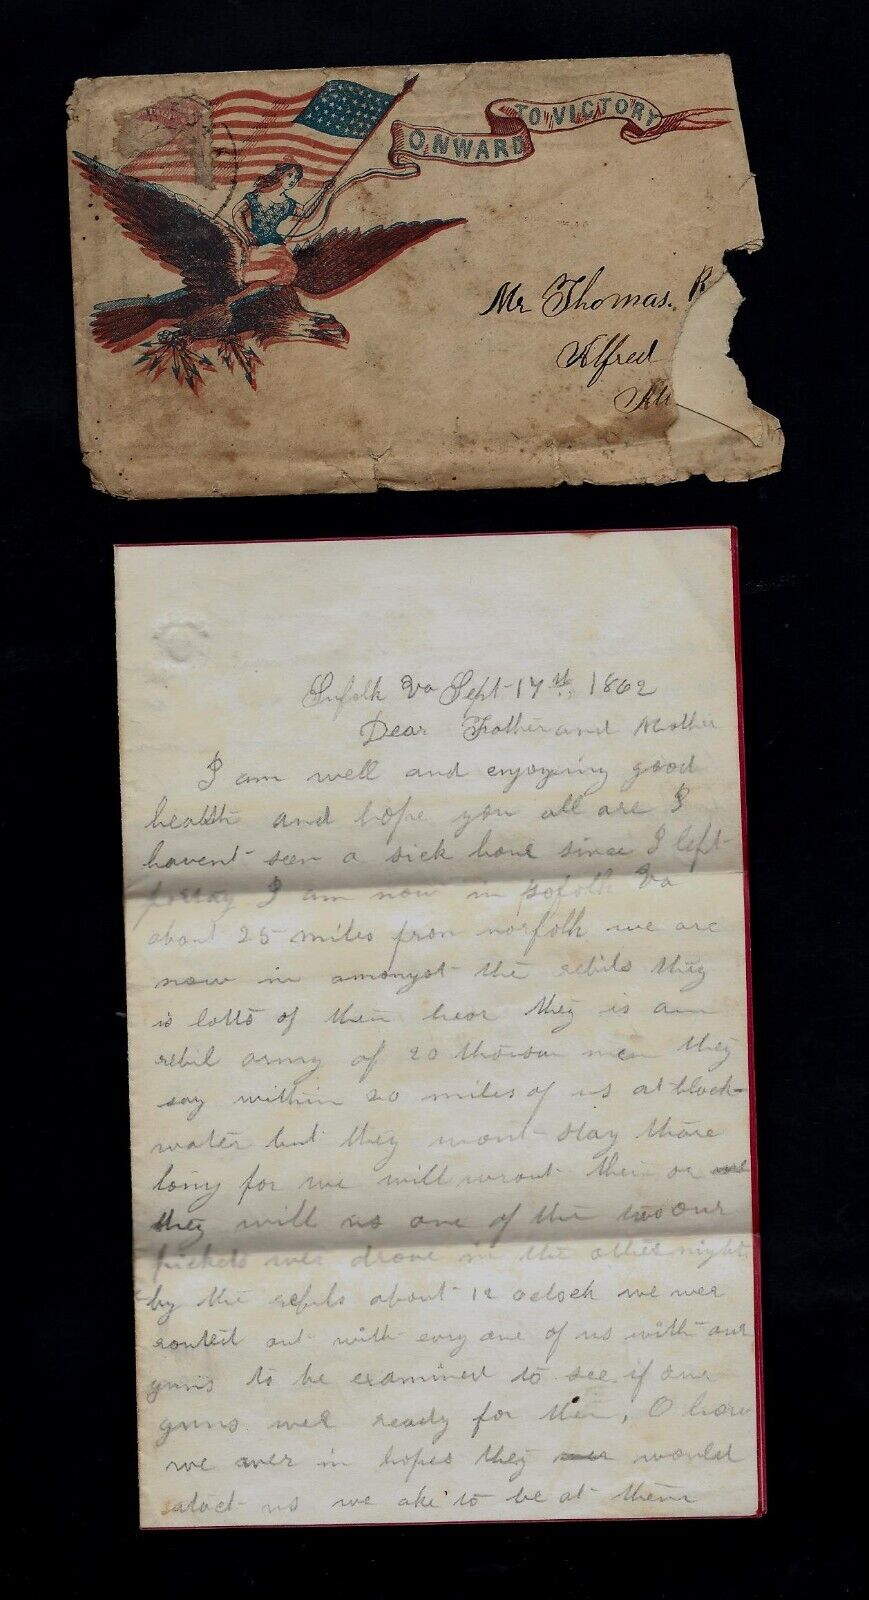 ONWARD TO VICTORY
Mr Thomas. R
Alfred
Sufolk Va Sept 17th 1862
Dear Father and Mother
I am well and enjoying good
health and hope you all are I
havent seen a sick hour since I left
I am now in Va
about 25 miles from norfolk we are
now in amongst the rebils they
is lotts of then hear they is am
rebil army of 20 thousan men they
say within 20 miles of us at black-
water but they wont stay thare
long for we will wrout then or we
they will us one of the two our
pickets wer drove in the other night
by the rebils about 12 oclock we wer
routed out with evry one of us with our
guns to be examined to see if our
guns wer ready for then, O how
we wer in hopes they would
atact us we ake to be at them